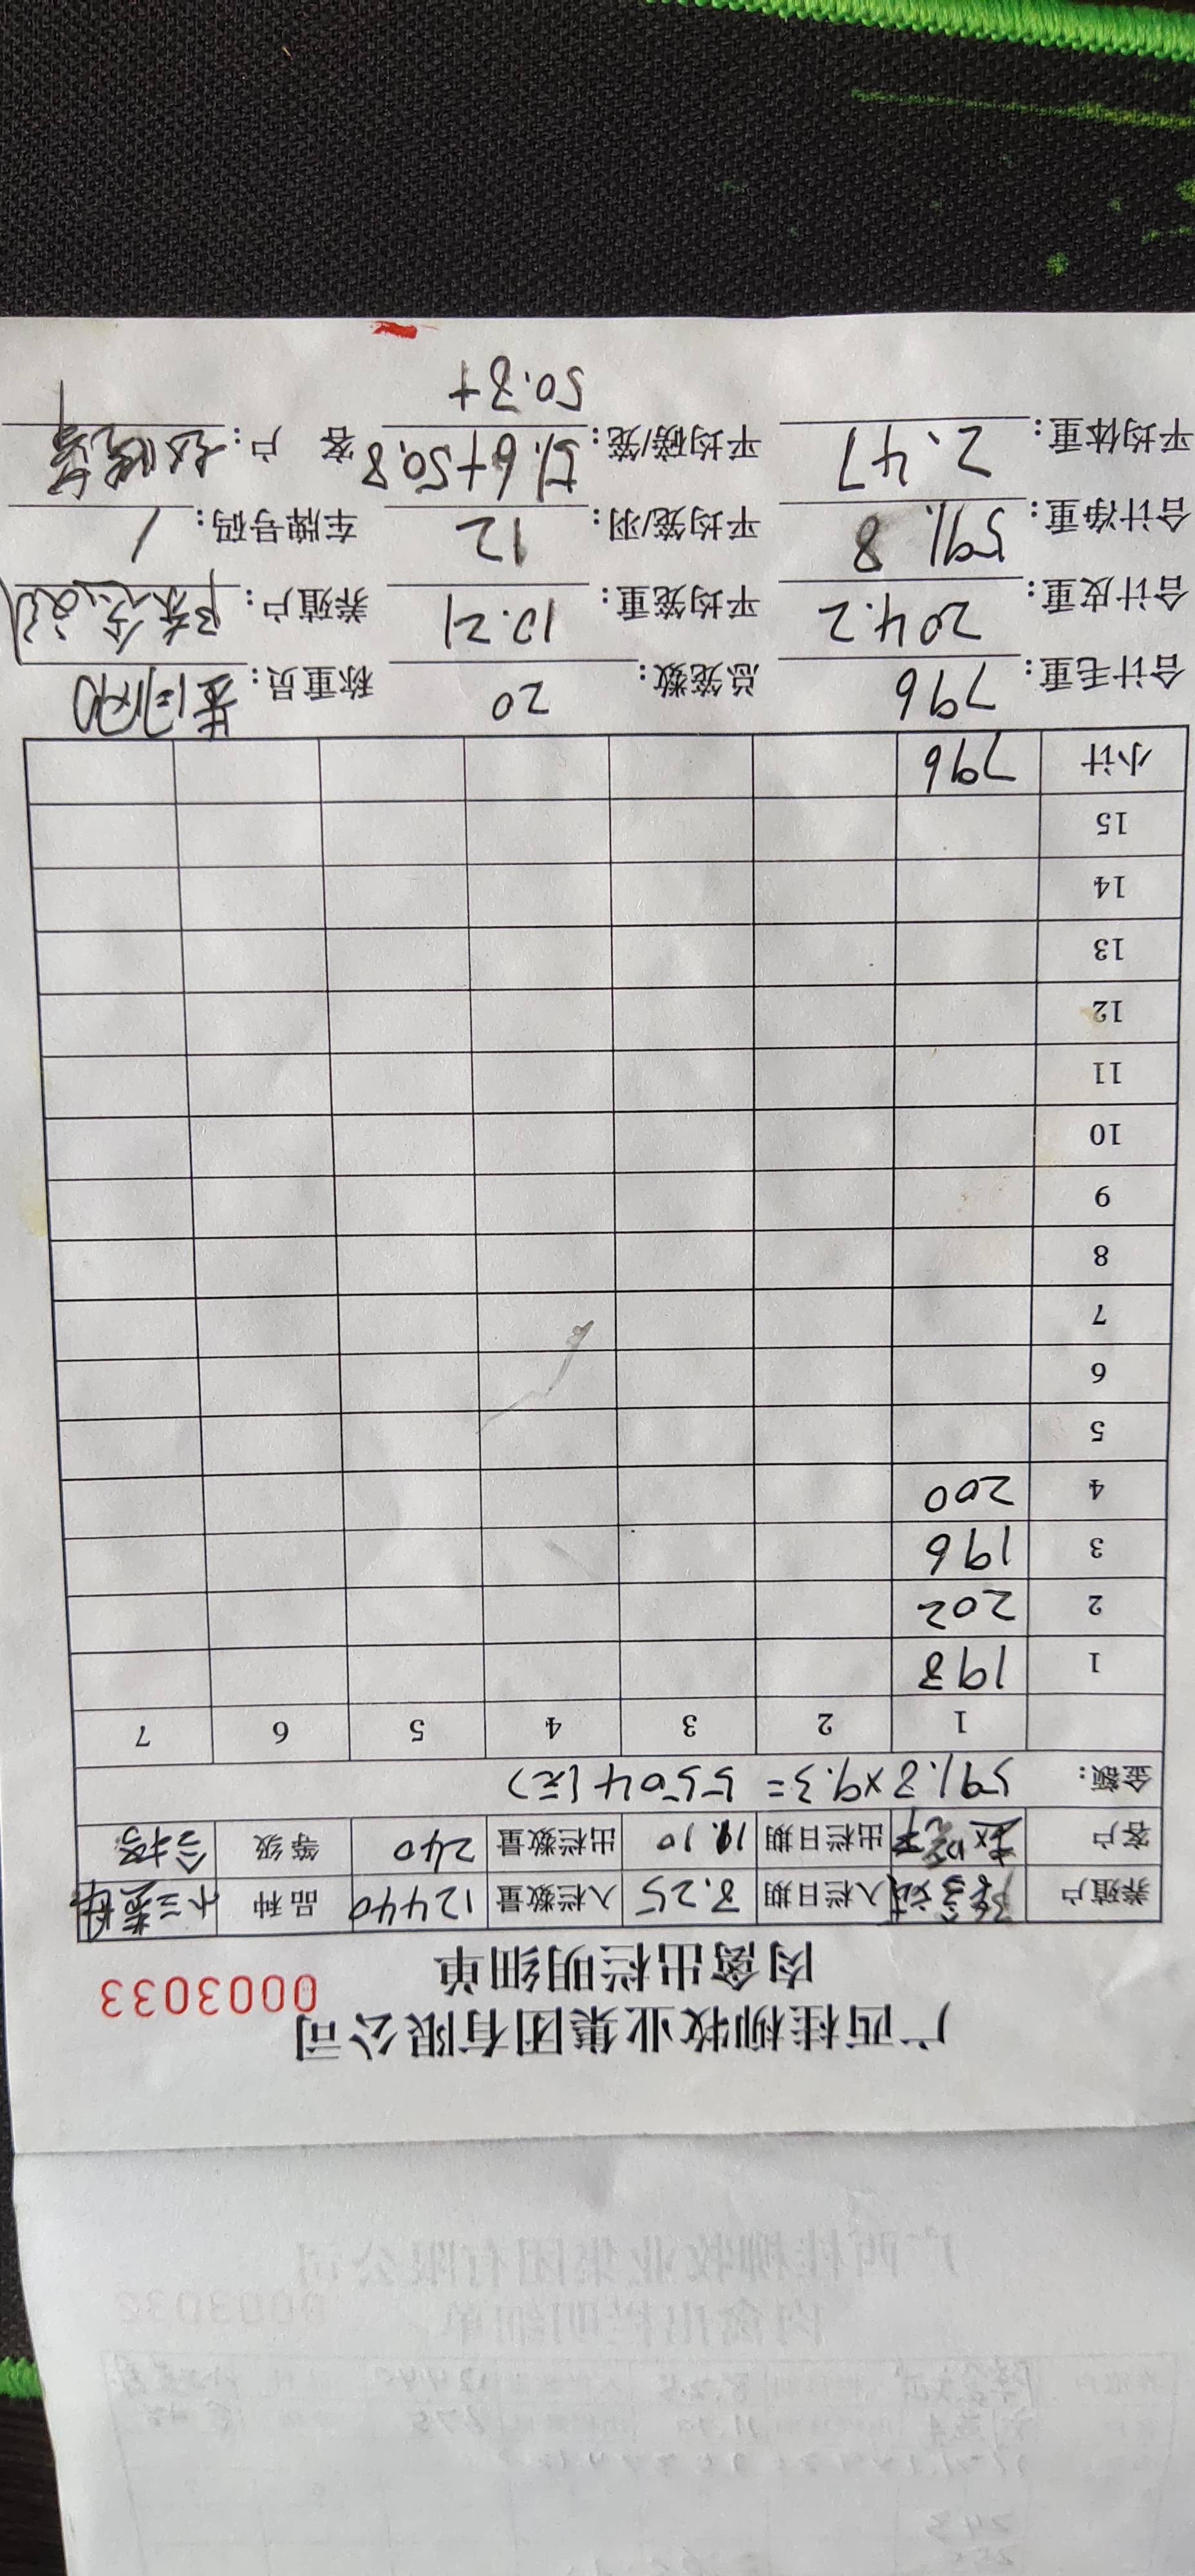 广西桂柳牧业集团有限公司
肉禽出栏明细单
0003033
养殖户 入栏日期 8.25 入栏数量 12440 品种
客户 出栏日期 11.10 出栏数量 240 等级
金额: 591.8×9.3=5504(元)
1 2 3 4 5 6 7
1 198
2 202
3 196
4 200
5
6
7
8
9
10
11
12
13
14
15
小计 796
合计毛重: 796 总笼数: 20 称重员:
合计皮重: 204.2 平均笼重: 10.21 养殖户:
合计净重: 591.8 平均笼/羽: 12 车牌号码: /
平均体重: 2.47 平均磅/笼: 51.6+50.8 客 户:
50.8+
广西桂柳牧业集团有限公司
0003032
肉禽出栏明细单